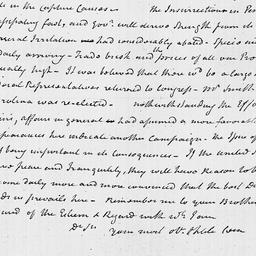 in the capture Causes — The Insurrection in Pen
operating fast, and Gov.t will derive Strength from it
neral Irritation had considerably abated — Specie is
daily arriving — Trade brisk and the prices of all our Pro
ually high — It was believed that there w.d be a large
Representatives returned to Congress. Mr Smith
arolina was re-elected — notwithstanding the
affairs in general had assumed a more favorable
appearances here indicate another Campaign. The Issue of
be very important in its Consequences — If the United S
Peace and Tranquility, they will have Reason to b
me daily more and more convinced that the best D
prevails here — Remember me to your Brother
ured of the Esteem & Regard with wh. I am
Dr Sir your most ob.t & hble